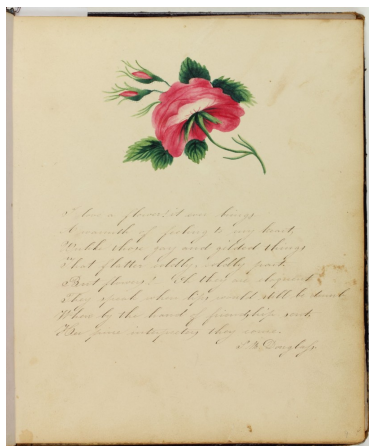 I love a flower, it ever brings
A warmth of feeling to my heart,
While those gay and gilded things
That flatter coldly, coldly part.
But flowers! Oh they are eloquent
They speak when lips would still be dumb,
When by the hand of friendship sent,
How pure interpreters they come.
S. M. Douglass